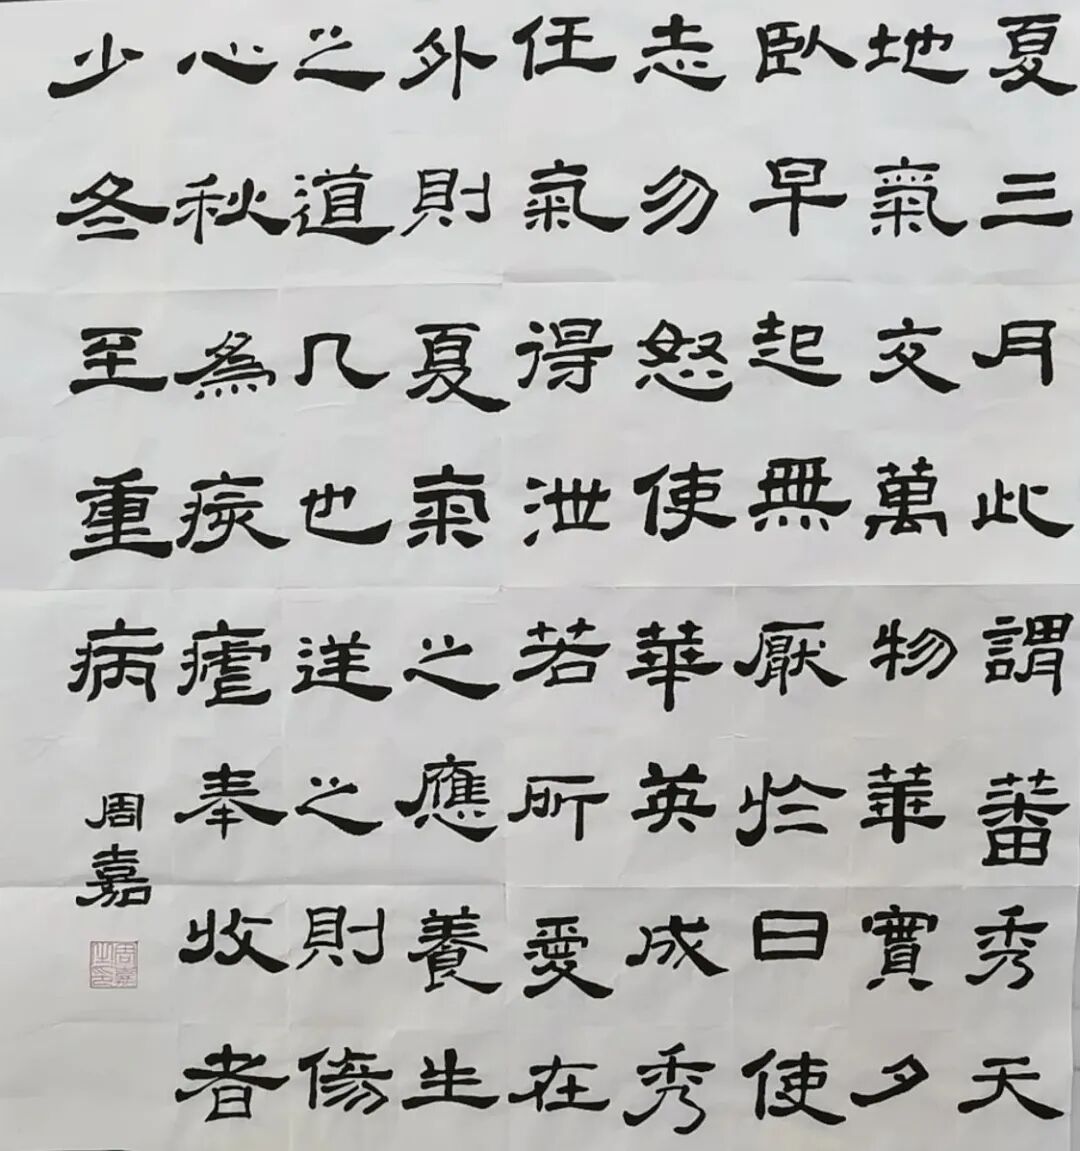 夏三月此謂蕃秀天
地氣交萬物華實夕
臥早起無厭於日使
志勿怒使華英成秀
任氣得泄若所愛在
外則夏氣之應養生
之道几也逆之則傷
心秋爲痎瘧奉收者
少冬至重病
周嘉
周嘉之印